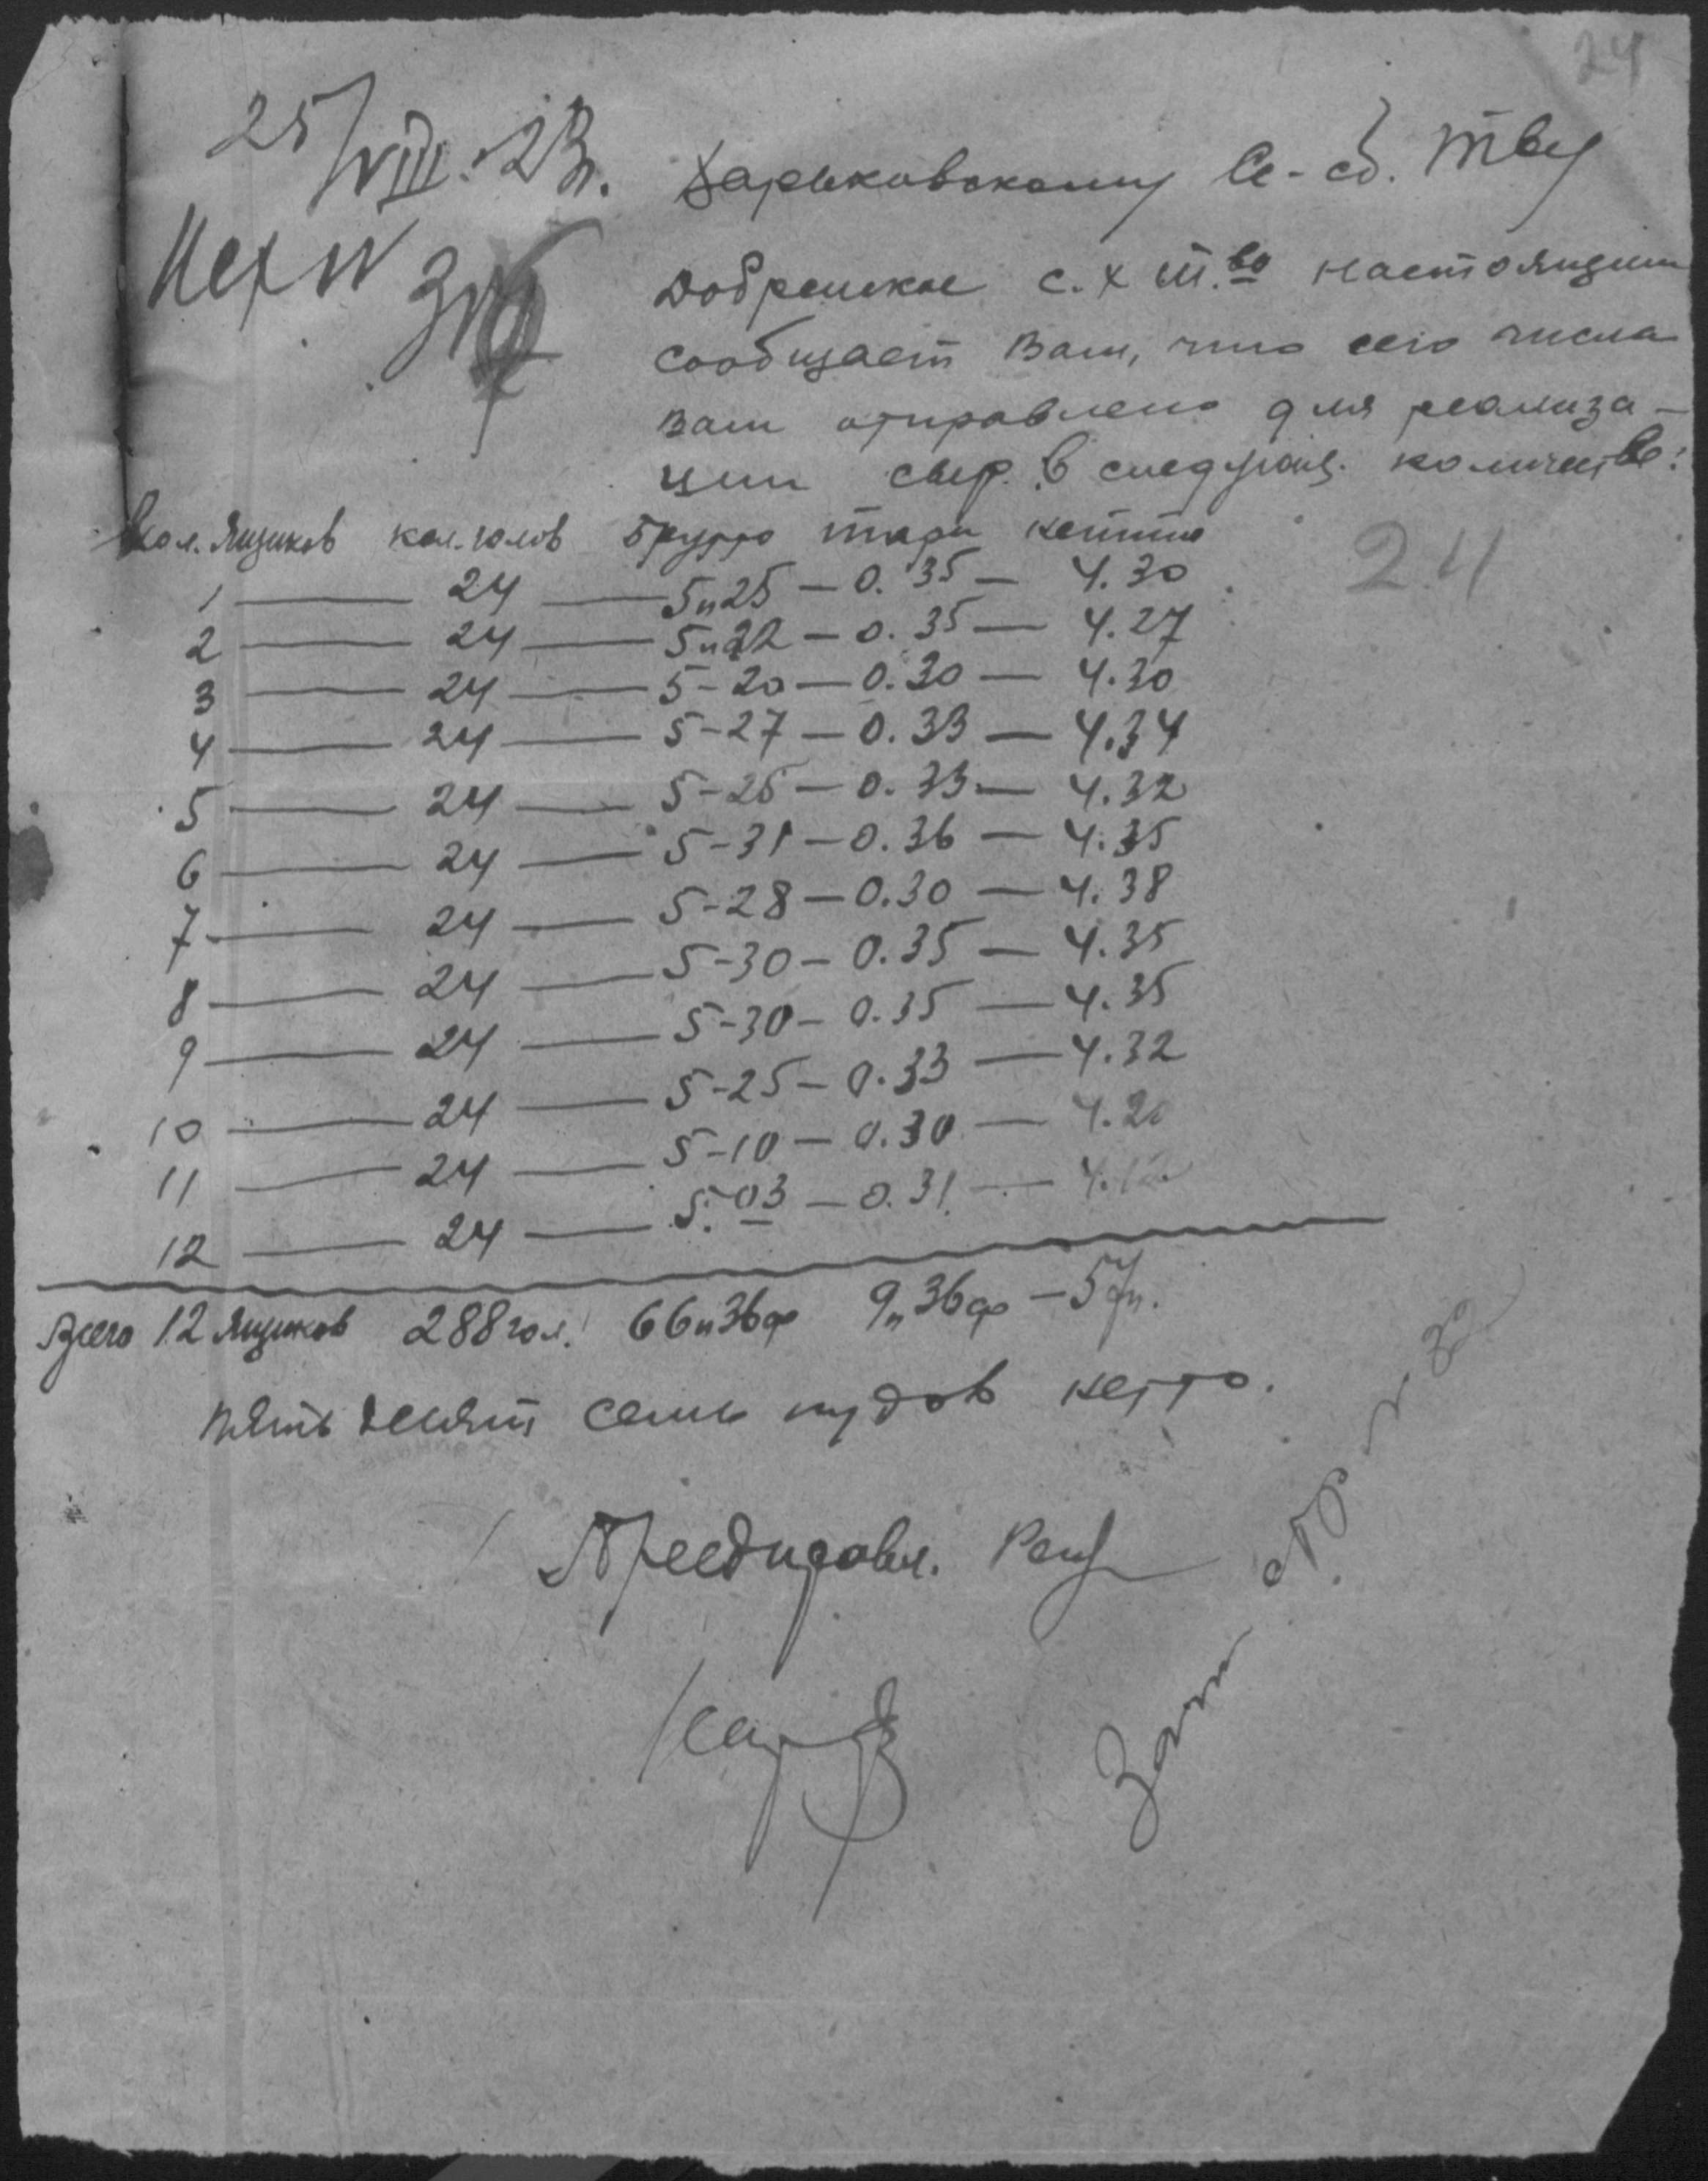 24
25/VIII.23г.
Исх №
Харьковскому Се-об. Тву
Добренское с.х т.во настоящим
сообщает Вам, что сего числа
Вам отправлено для реализа-
ции сыр. в следующ. количестве:
Кол. ящиков кол. голов брутто тара нетто
1 — 24 — 5п25 — 0.35 — 4.30
24
2 — 24 — 5п22 — 0.35 — 4.27
3 — 24 — 5-20 — 0.30 — 4.30
4 — 24 — 5-27 — 0.33 — 4.34
5 — 24 — 5-25 — 0.33 — 4.32
6 — 24 — 5-31 — 0.36 — 4.35
7 — 24 — 5-28 — 0.30 — 4.38
8 — 24 — 5-30 — 0.35 — 4.35
9 — 24 — 5-30 — 0.35 — 4.35
10 — 24 — 5-25 — 0.33 — 4.32
11 — 24 — 5-10 — 0.30 — 4.20
12 — 24 — 5.03 — 0.31 — 4.12
Всего 12 ящиков 288 гол. 66п36ф 9п36ф — 57п.
Пять десят семь пудов нетто.
Предправл.